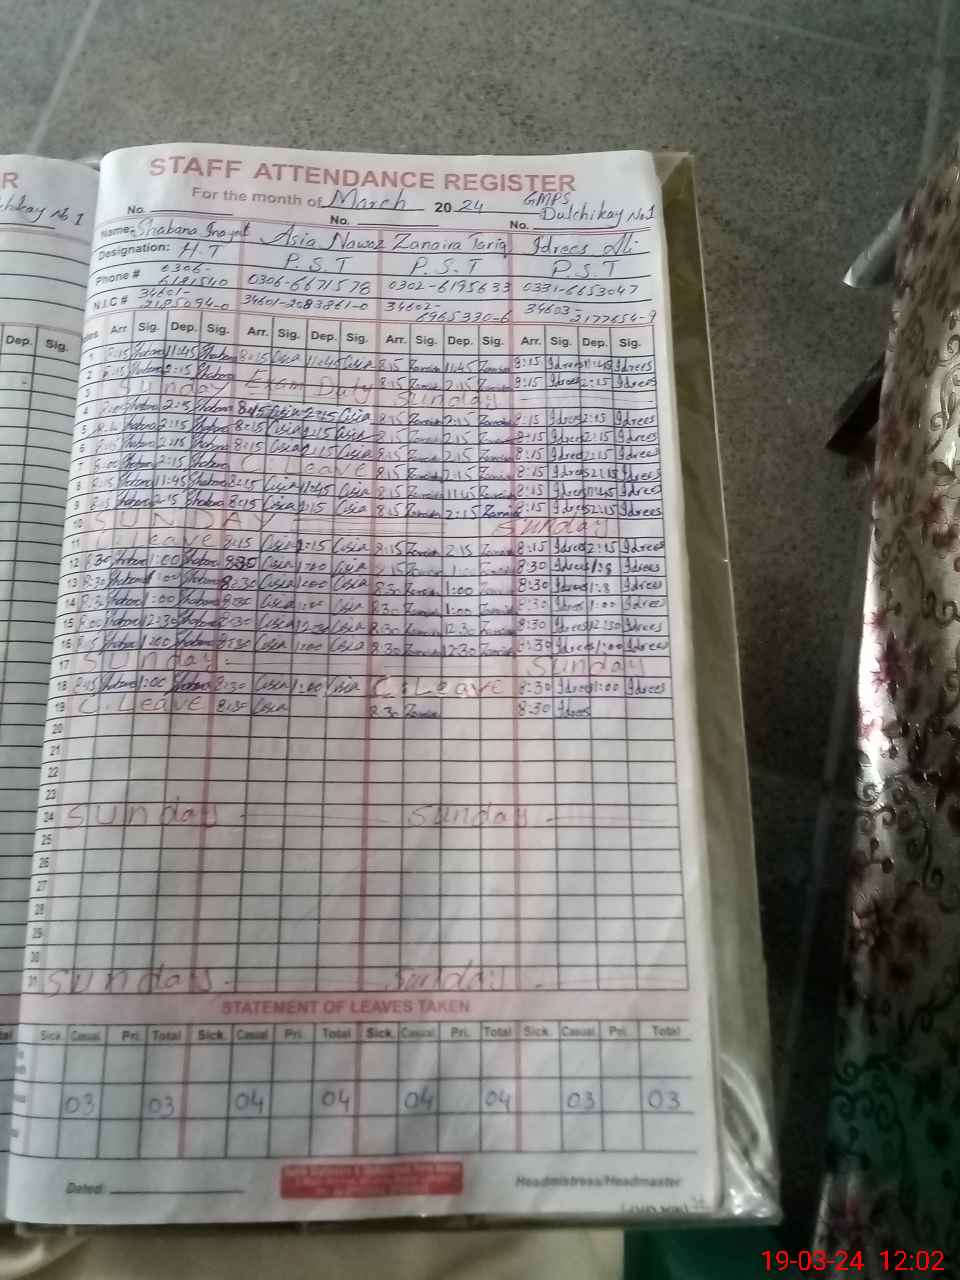 R
No 1
STAFF ATTENDANCE REGISTER
For the month of March 2024 GMPS
No. No. No. Dulchikay No1
Name: Shabana Inayat Asia Nawaz Zanaira Tariq Idrees Ali
Designation: H.T P.S.T P.S.T P.S.T
Phone # 0306- 0306-6671578 0302-6195633 0331-6653047
N.I.C # 34601- 34601-2083861-0 34602- 34603-
2185094-0 6965330-6 2177654-9
Dep. Sig. Arr. Sig. Dep. Sig. Arr. Sig. Dep. Sig. Arr. Sig. Dep. Sig. Arr. Sig. Dep. Sig.
1 8:15 Shabana 11:45 Shabana 8:15 Asia 11:45 Asia 8:15 Zanaira 11:45 Zanaira 8:15 Idrees 11:45 Idrees
2 8:15 Shabana 2:15 Shabana Exam Duty 8:15 Zanaira 2:15 Zanaira 8:15 Idrees 2:15 Idrees
3 Sunday Sunday
4 Shabana 2:15 Shabana 8:15 Asia 2:15 Asia 8:15 Zanaira 2:15 Zanaira 8:15 Idrees 2:15 Idrees
5 Shabana 2:15 Shabana 8:15 Asia 2:15 Asia 8:15 Zanaira 2:15 Zanaira 8:15 Idrees 2:15 Idrees
6 Shabana 2:15 Shabana 8:15 Asia 2:15 Asia 8:15 Zanaira 2:15 Zanaira 8:15 Idrees 2:15 Idrees
7 8:00 Shabana 2:15 Shabana C.Leave 8:15 Zanaira 2:15 Zanaira 8:15 Idrees 2:15 Idrees
8 8:15 Shabana 11:45 Shabana 8:15 Asia 11:45 Asia 8:15 Zanaira 11:45 Zanaira 8:15 Idrees 11:45 Idrees
9 8:15 Shabana 2:15 Shabana 8:15 Asia 2:15 Asia 8:15 Zanaira 2:15 Zanaira 8:15 Idrees 2:15 Idrees
10 SUNDAY Sunday
11 C.Leave 8:15 Asia 2:15 Asia 8:15 Zanaira 2:15 Zanaira 8:15 Idrees 2:15 Idrees
12 8:30 Shabana 1:00 Shabana 8:30 Asia 1:00 Asia 8:15 Zanaira 1:00 Zanaira 8:30 Idrees Idrees
13 8:30 Shabana 1:00 Shabana 8:30 Asia 1:00 Asia 8:30 Zanaira 1:00 Zanaira 8:30 Idrees Idrees
14 8:30 Shabana 1:00 Shabana 8:30 Asia 1:00 Asia 8:30 Zanaira 1:00 Zanaira 8:30 Idrees 1:00 Idrees
15 8:00 Shabana 12:30 Shabana 8:30 Asia 12:30 Asia 8:30 Zanaira 12:30 Zanaira 8:30 Idrees 12:30 Idrees
16 8:15 Shabana 1:00 Shabana 8:30 Asia 1:00 Asia 8:30 Zanaira 12:30 Zanaira 8:30 Idrees 1:00 Idrees
17 Sunday Sunday
18 8:15 Shabana 1:00 Shabana 8:30 Asia 1:00 Asia C.Leave 8:30 Idrees 1:00 Idrees
19 C.Leave 8:30 Asia 8:30 Zanaira 8:30 Idrees
20
21
22
23
24 Sunday Sunday
25
26
27
28
29
30
31 Sunday Sunday
STATEMENT OF LEAVES TAKEN
Sick. Casual Pri. Total Sick. Casual Pri. Total Sick. Casual Pri. Total Sick. Casual Pri. Total
03 03 04 04 04 04 03 03
Dated: Headmistress/Headmaster
19-03-24 12:02